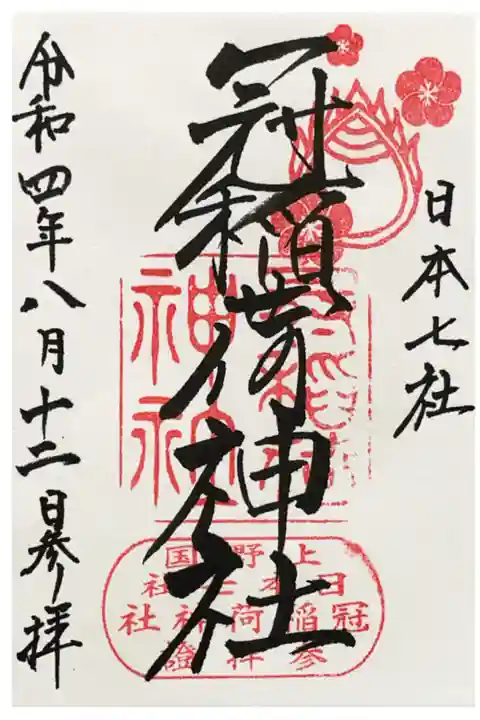 日本七社
冠稲荷神社
令和四年八月十二日参拝
神社
上野国
日本七社
冠稲荷神社
参拝證